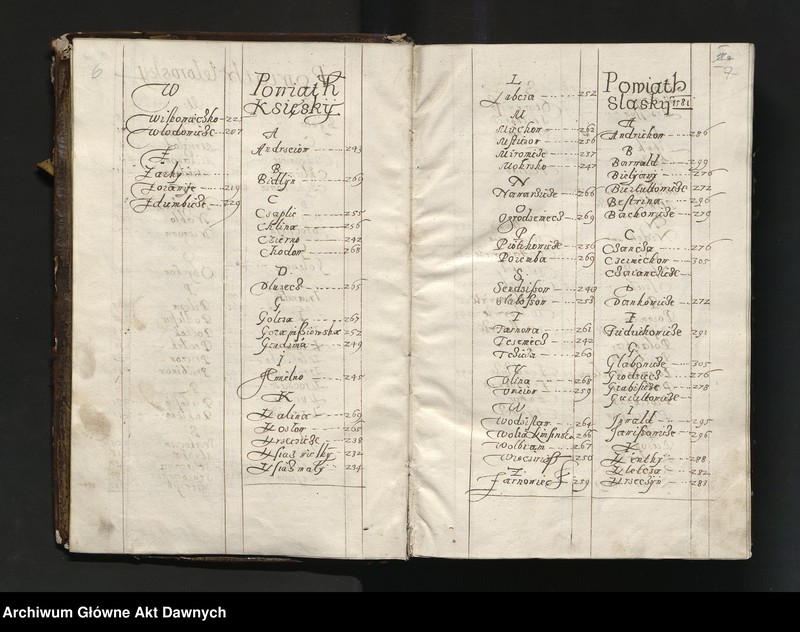 6
W
Wißowaticzko 225
Wlodowicze 207
Z
Zarky
Zdumbicze 229
Powiath
Xsięskÿ
A
Andrseiow 243
B
Bidlÿn 269
C
Csaplie 255
Cslina 256
Czierno 242
Chodow 268
D
Dlusecz 265
G
Golcza 267
Gorzapißiowska 252
Grudzina 249
I
Jmielno 245
K
Kalina 269
Koslow 265
Krzecicze 238
Ksias wielkÿ 232
Ksias malÿ 234
L
Lubcia 252
M
Muchow 262
Msticzow 256
Miromicze 237
Mokrsko 247
N
Nawarzicze 266
O
Ogrodzienecz 269
P
Piotrkowicze 236
Poremba 269
S
Sendzißow 240
Slaboßow 253
T
Tarnowa 261
Tczienecz 242
Tczicza 260
V
Vlina 268
Vnieiow 259
W
Wodzislaw 264
Wolia kmsinska 266
Wolbram 267
Wroczimirß 250
Z
Zarnowiecz 259
7
Powiath
Slaskÿ 1581
A
Andrichow 286
B
Barwald 299
Bielÿanÿ 276
Bieztultowicze 272
Bestrina 296
Bachowicze 279
C
Csancza 276
Czsimechow 305
Csvianczicze
D
Dankowicze 272
F
Friduchowicze 291
G
Glabowicze 305
Grodziecz 276
Grabißicze 278
Gieraltowicze
I
Iÿwald 295
Jarißowicze 296
K
Kentkÿ 288
Kletcza 282
Krzeczÿn 283
Archiwum Główne Akt Dawnych